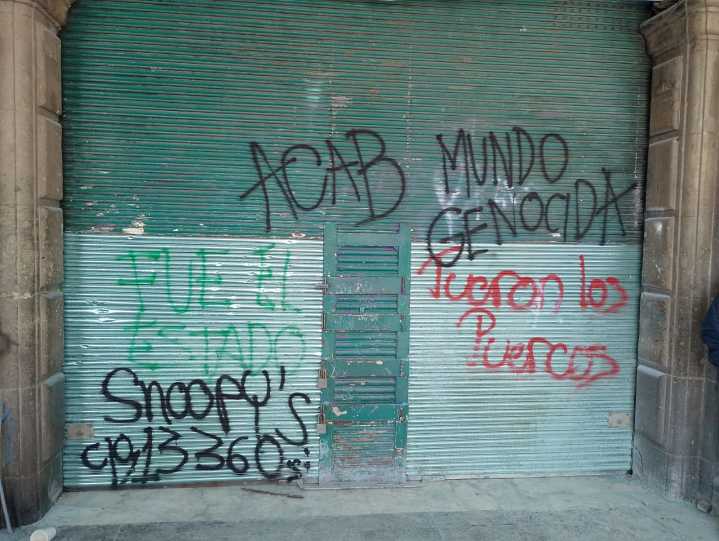 ACAB
MUNDO
GENOCIDA
FUE EL
ESTADO
Fueron los
Puercos
Snoopy's
C.P. 13360